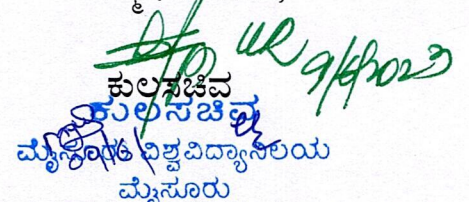 9/6/2023
ಕುಲಸಚಿವ
ಕುಲಸಚಿವ
ಮೈಸೂರು ವಿಶ್ವವಿದ್ಯಾನಿಲಯ
ಮೈಸೂರು